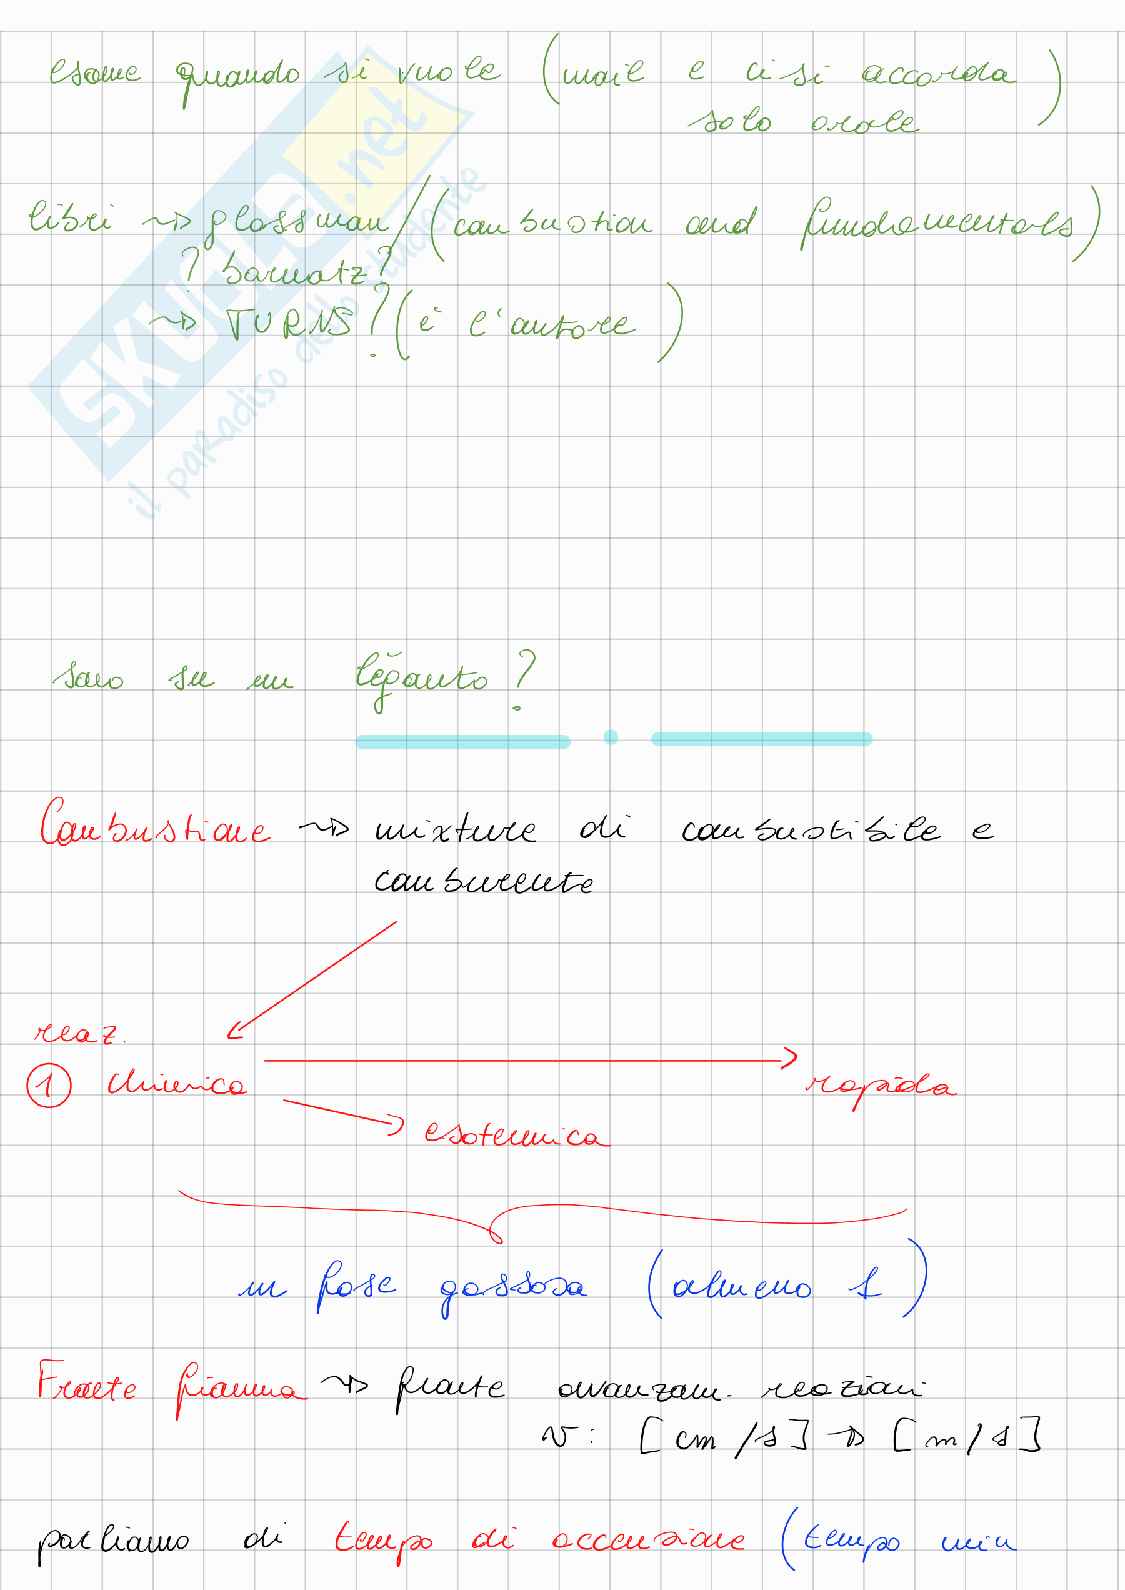 esame quando si vuole (mail e ci si accorda)
solo orale
libri ~> glassman/(combustion and fundamentals)
? barnatz?
~> TURNS? (è l'autore)
SKUOLA.net
il paradiso dello studente
sarò su un leganto?
Combustione ~> mixture di combustibile e
comburente
reaz.
① chimica → rapida
→ esotermica
in fase gassosa (almeno 1)
Fronte fiamma ~> fronte avanzam. reazioni
v: [cm/s] → [m/s]
parliamo di tempo di accensione (tempo min